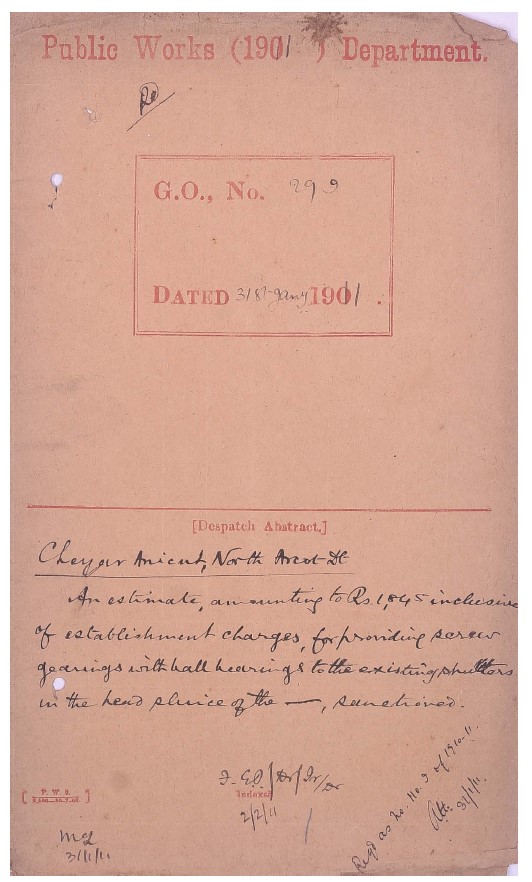 Public Works (1911) Department.
G.O., No. 299
DATED 31st Jany 1911.
[Despatch Abstract.]
Cheyar Anicut, North Arcot Dt
An estimate, amounting to Rs. 1,845 inclusive
of establishment charges, for providing screw
gearings with ball bearings to the existing shutters
in the head sluice of the —, sanctioned.
Regd as No. 110. I of 1910-11.
31/1/11
Indexed
2/2/11
[P. W. D.]
31/1/11